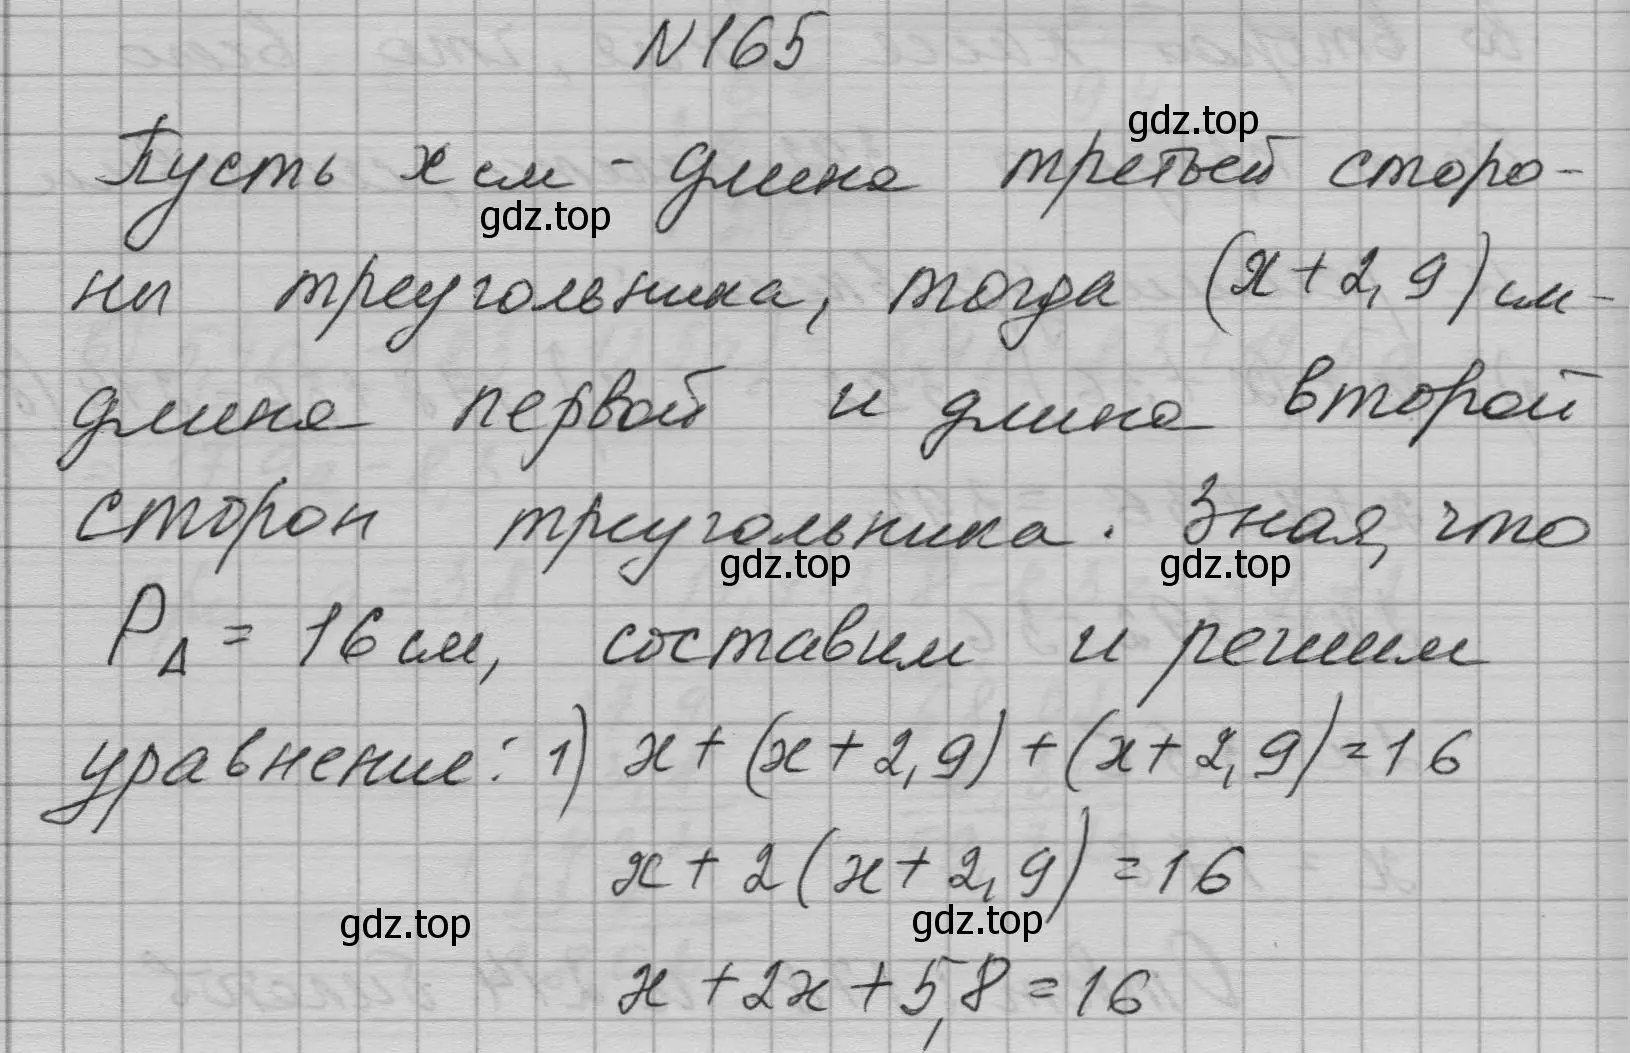 N165
gdz.top
Пусть x см - длина третьей сторо-
gdz.top
ны треугольника, тогда (x+2,9) см-
длина первой и длина второй
сторон треугольника. Зная, что
gdz.top gdz.top
P△ = 16 см, составим и решим
уравнение: 1) x+(x+2,9)+(x+2,9)=16
x+2(x+2,9)=16
gdz.top gdz.top
x+2x+5,8=16